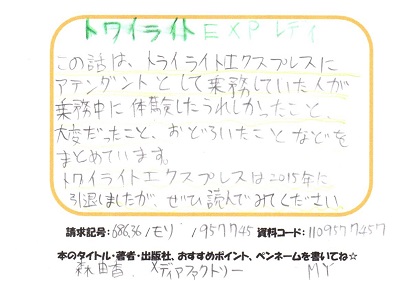 トワイライトEXPレディ
この話は、トライライトエクスプレスに
アテンダントとして乗務していた人が
乗務中に体験したうれしかったこと、
大変だったこと、おどろいたことなどを
まとめています。
トワイライトエクスプレスは2015年に
引退しましたが、ぜひ読んでみてください
請求記号:686.36/モリ/1957745 資料コード:1109577457
本のタイトル・著者・出版社、おすすめポイント、ペンネームを書いてね☆
森由香 メディアファクトリー MY